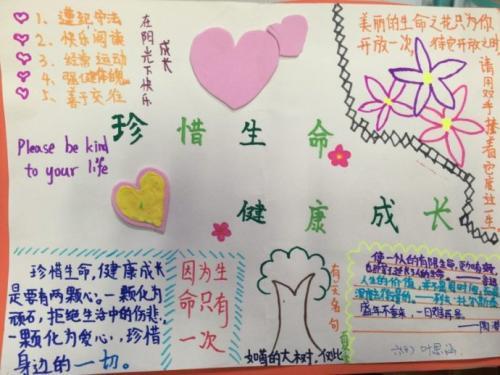 1、遵纪守法
2、快乐阅读
3、经常运动
4、强健体魄
5、善于交往
在阳光下快乐
成长
美丽的生命之花只为你
开放一次,
请用双手接着它度过一生
珍惜生命
Please be kind
to your life
健康成长
珍惜生命,健康成长
是要有两颗心:一颗化为
顽石,拒绝生活中的伤悲,
一颗化为爱心,珍惜
身边的一切。
因为生
命只有
一次
如茵的大树,
有关名句
使一个人的有限生命,更加有效
人生的价值,
盛年不重来,一日难再晨。